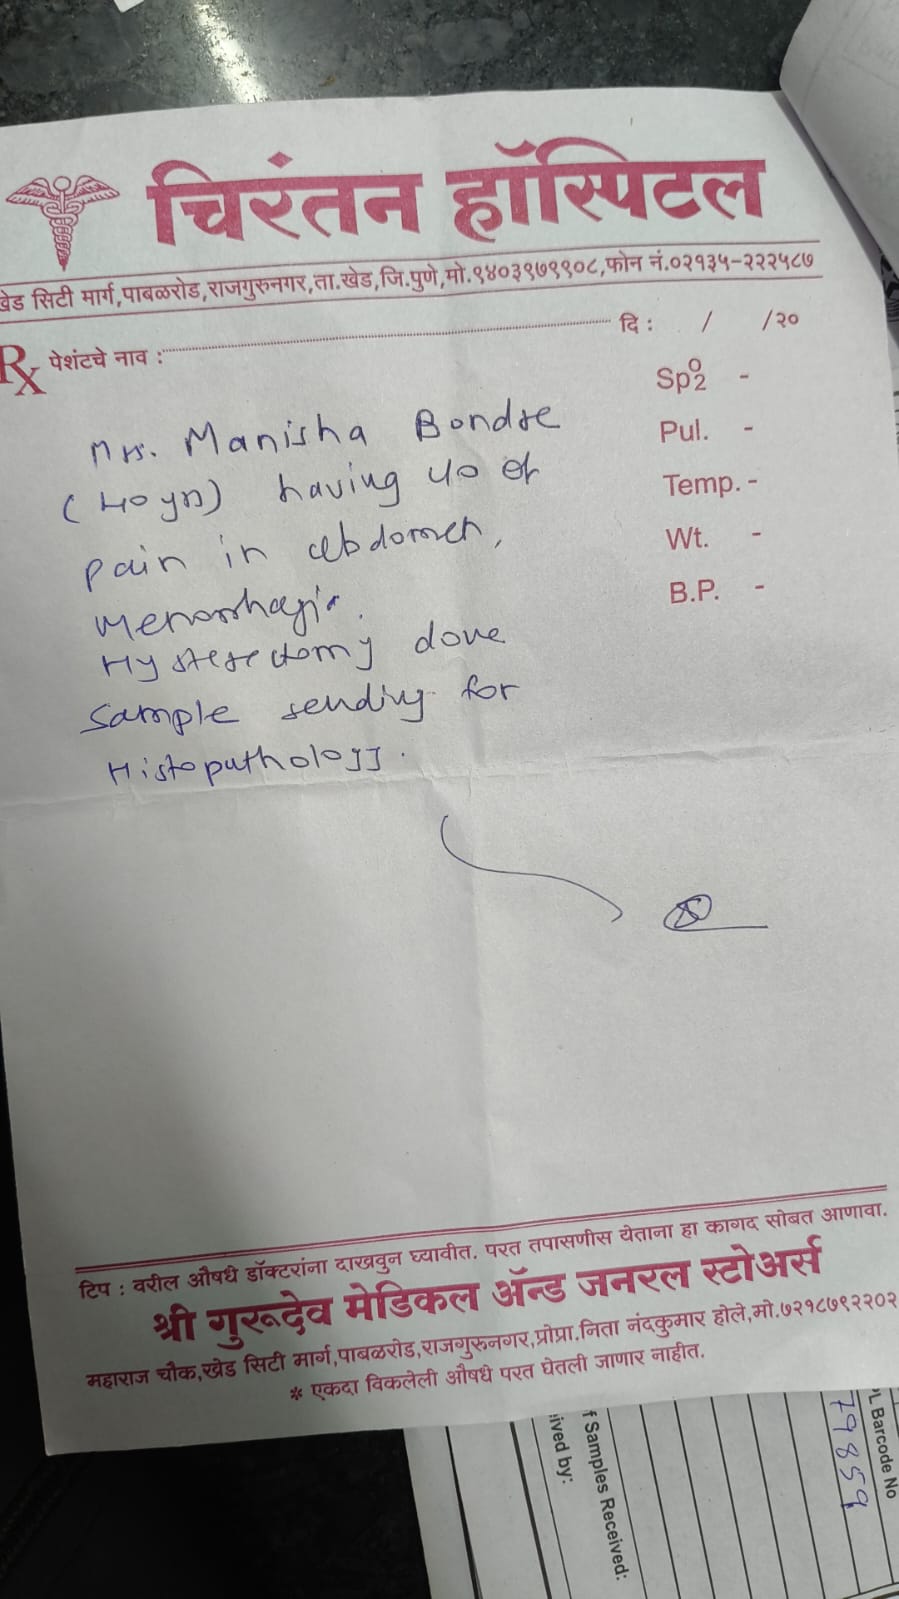 चिरंतन हॉस्पिटल
खेड सिटी मार्ग,पाबळरोड,राजगुरुनगर,ता.खेड,जि.पुणे,मो.९४०३९७९९०८,फोन नं.०२१३५-२२२५८७
Rx पेशंटचे नाव : दि : / /२०
Spo2 -
Pul. -
Temp. -
Wt. -
B.P. -
Mrs. Manisha Bondre
(40 yrs) having
pain in abdomen,
Menorrhagia.
Hysterectomy done
sample sending for
Histopathology.
टिप : वरील औषधे डॉक्टरांना दाखवुन घ्यावीत. परत तपासणीस येताना हा कागद सोबत आणावा.
श्री गुरूदेव मेडिकल ॲन्ड जनरल स्टोअर्स
महाराज चौक,खेड सिटी मार्ग,पाबळरोड,राजगुरुनगर,प्रोप्रा.निता नंदकुमार होले,मो.७२१८७९२२०२
* एकदा विकलेली औषधे परत घेतली जाणार नाहीत.
PL Barcode No
79859
f Samples Received:
ived by: